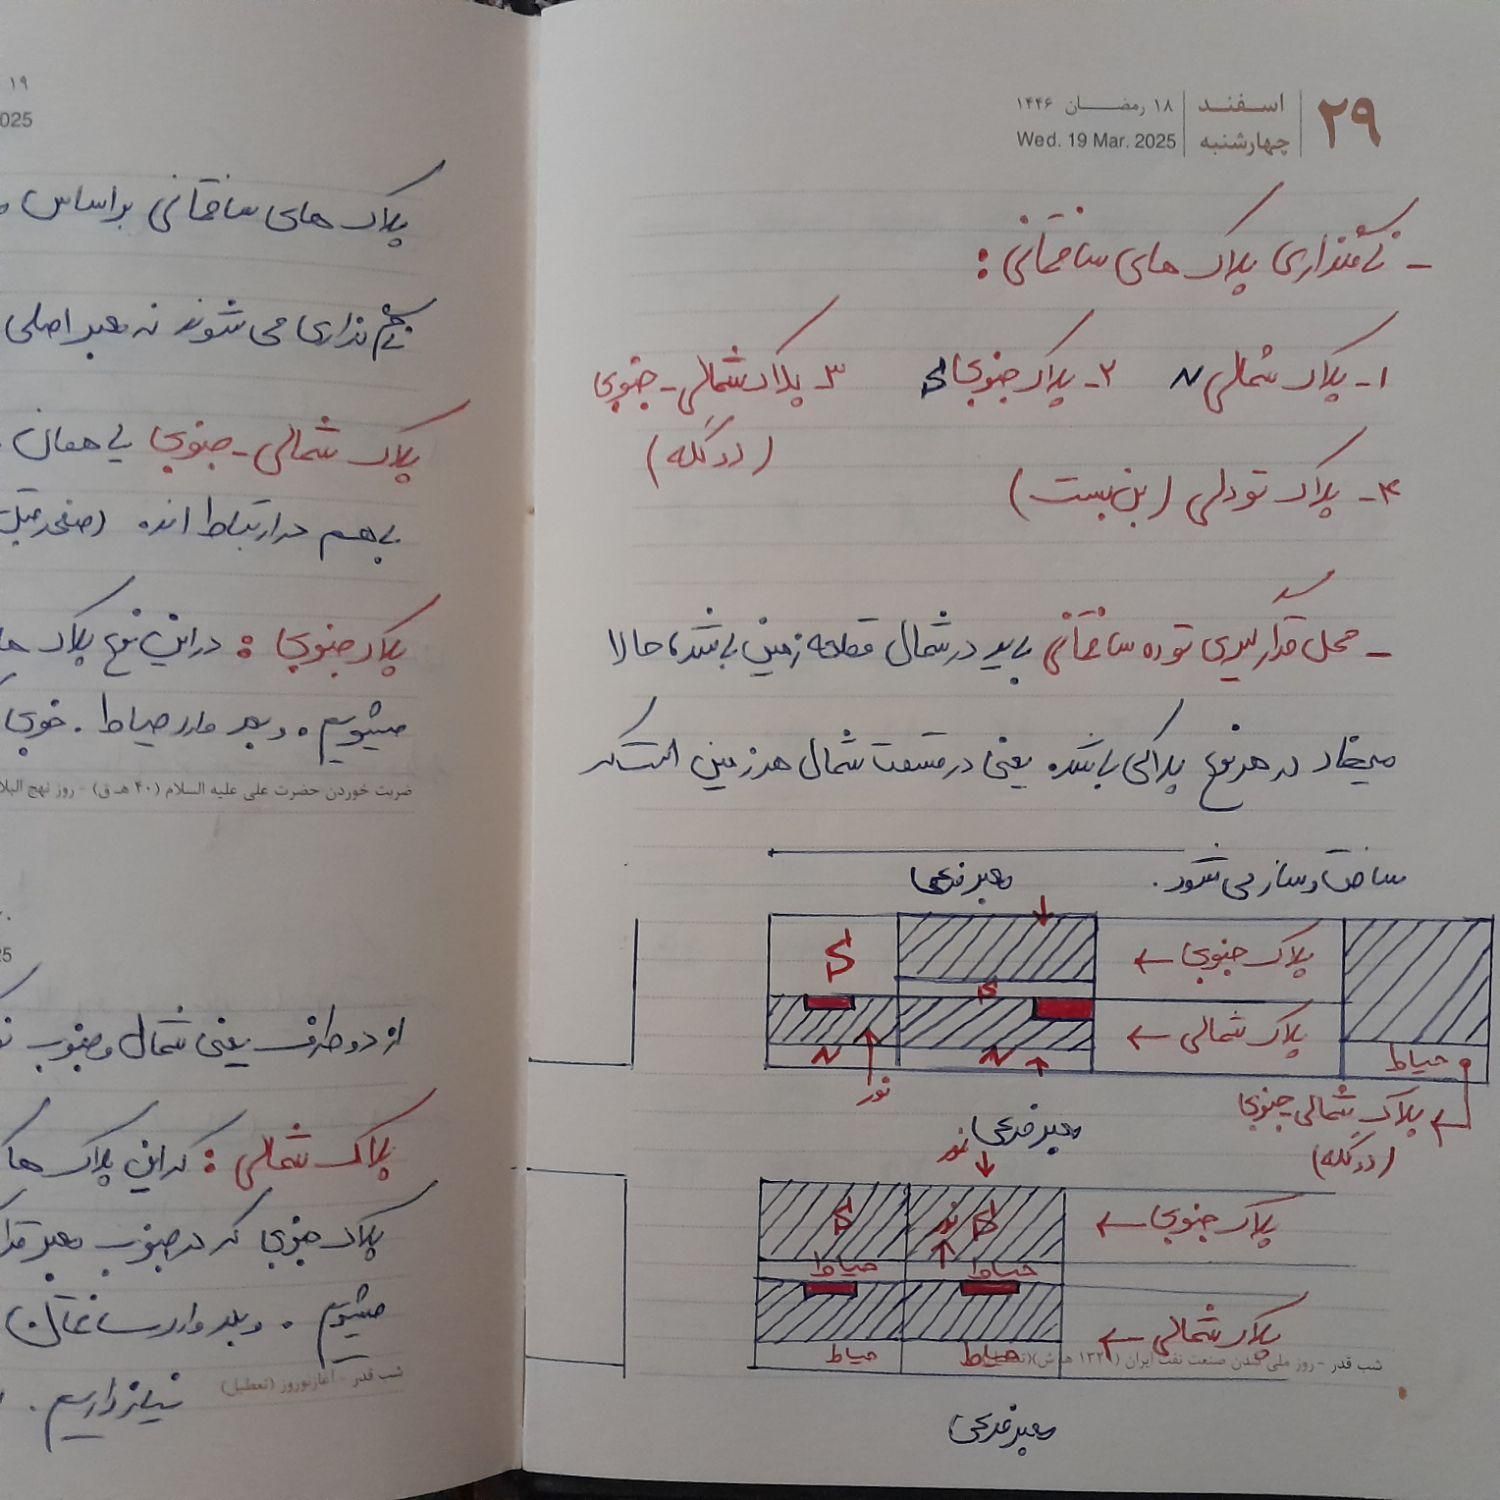 ۲۹
اسفند
چهارشنبه
۱۸ رمضان ۱۴۴۶
Wed. 19 Mar. 2025
- نامگذاری پلاک های ساختمانی :
۱- پلاک شمالی N ۲- پلاک جنوبی S ۳- پلاک شمالی - جنوبی
(دو کله)
۴- پلاک تودلی (بن بست)
- محل قرارگیری توده ساختمانی باید در شمال قطعه زمین باشد، حالا
میخواد در هر نوع پلاکی باشد، یعنی در قسمت شمال هر زمین است که
ساخت و ساز می شود.
معبر فرعی
پلاک جنوبی ←
S
S
پلاک شمالی ←
حیاط
N
N
نور
پلاک شمالی جنوبی
(دو کله)
معبر فرعی
نور
پلاک جنوبی ←
S
نور
S
حیاط
حیاط
پلاک شمالی ←
حیاط
حیاط
شب قدر - روز ملی شدن صنعت نفت ایران
معبر فرعی
۱۹
025
پلاک های ساختمانی براساس
نامگذاری می شوند نه معبر اصلی
پلاک شمالی - جنوبی یا همان
باهم در ارتباط اند. (صفحه قبل
پلاک جنوبی : در این نوع پلاک ها
میشویم. و بعد وارد حیاط. خوبی
ضربت خوردن حضرت علی علیه السلام (۴۰ هـ ق) - روز نهج البلا
25
از دو طرف یعنی شمال و جنوب
پلاک شمالی : در این پلاک ها
پلاک جنوبی که در جنوب معبر
میشویم. و بعد وارد ساختمان
شب قدر - آغاز نوروز (تعطیل)
نیاز داریم.